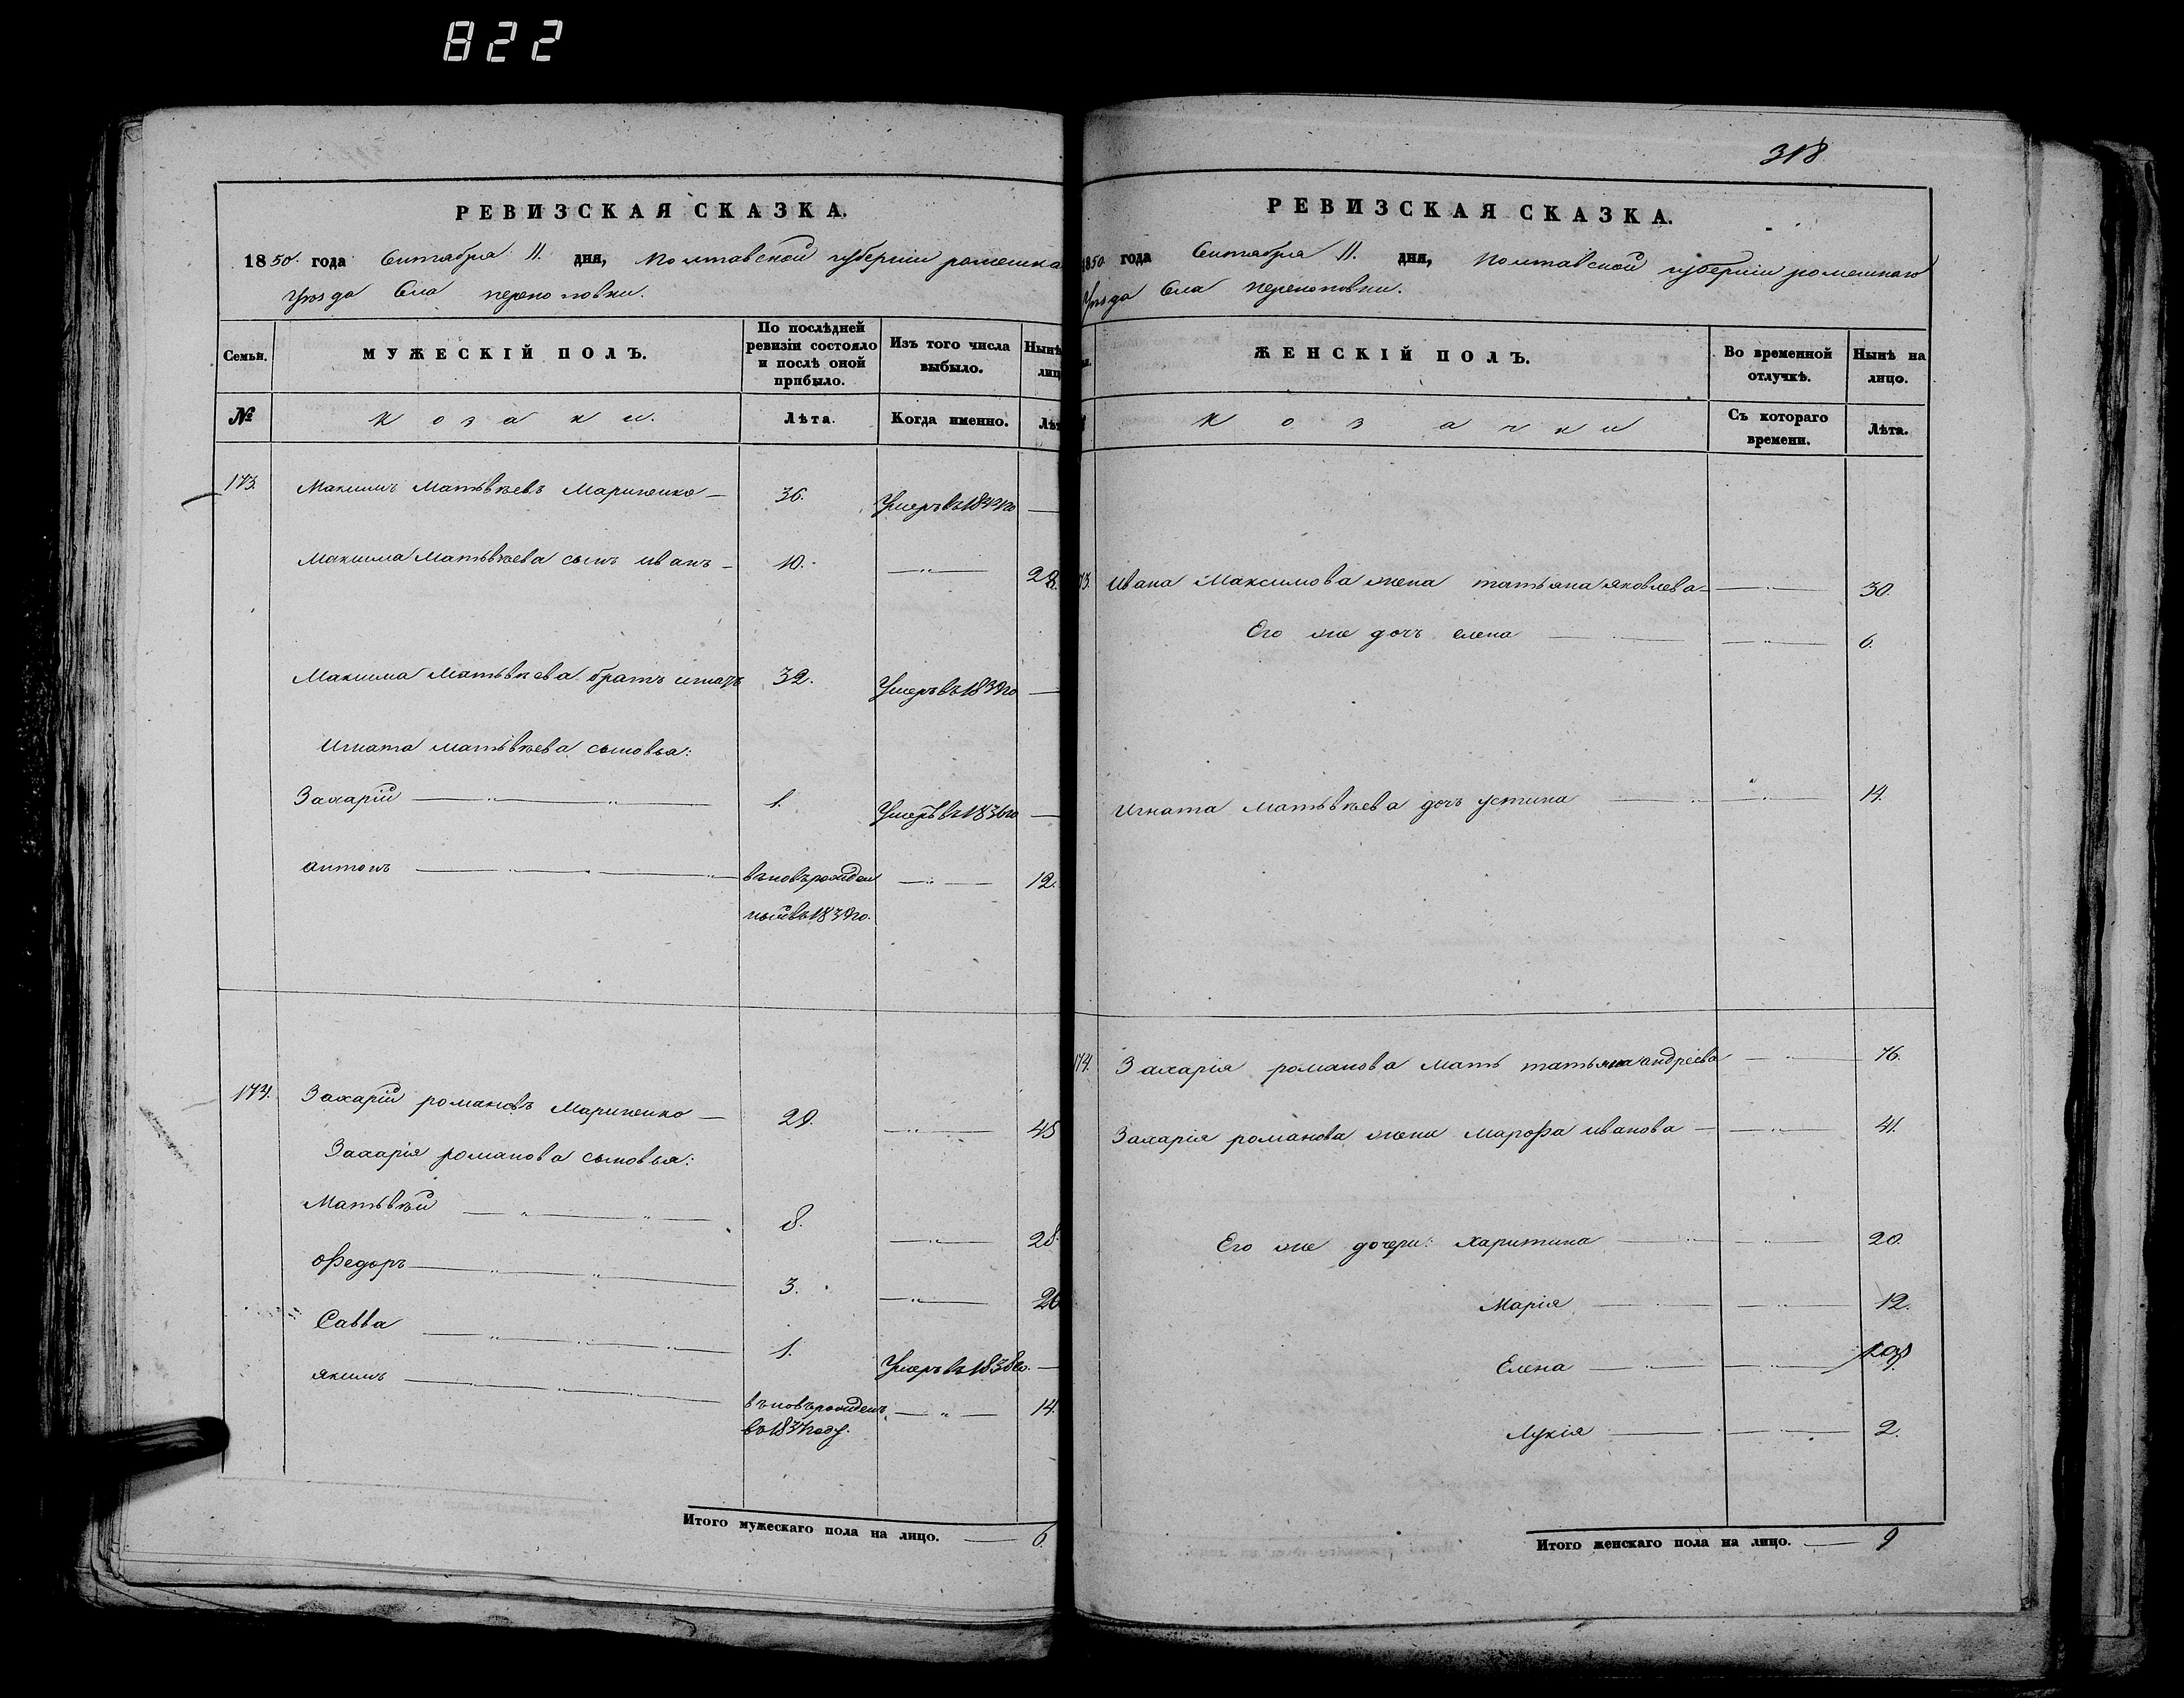 822
318
РЕВИЗСКАЯ СКАЗКА.
1850. года Сентября 11. дня, Полтавской губерніи роменска
Уѣзда Села перекоповки.
Семьи.
МУЖЕСКІЙ ПОЛЪ.
По послѣдней ревизіи состояло и послѣ оной прибыло.
Изъ того числа выбыло.
Нынѣ лиц
№
козаки.
Лѣта.
Когда именно.
Лѣт
173. Максимъ Матьвѣевъ Мариненко — 36. Умеръ въ 184 го —
Максима Матьвѣева сынъ иванъ — 10. — „ — 28.
Максима Матьвѣева братъ игнатъ 32. Умеръ въ 1839 го —
Игната матьвѣева сыновья:
Захарій — „ — „ — 1. Умеръ въ 1836 го —
антонъ — „ — „ — вьновърожден — „ — 12.
ный въ 1839 го.
174. Захарій романовъ Мариненко — 29. — „ — 45
Захарія романова сыновья:
Матьвѣй — „ — „ — 8. — „ — 28.
Ѳедоръ — „ — „ — 3. — „ — 20
Савва — „ — „ — 1. Умеръ въ 1838 го. —
якимъ — „ — „ — вьновърожденъ — „ — 14.
въ 1837 году.
Итого мужескаго пола на лицо. — 6
РЕВИЗСКАЯ СКАЗКА.
1850 года Сентября 11. дня, Полтавской губерніи роменскаго
Уѣзда Села перекоповки.
ЖЕНСКІЙ ПОЛЪ.
Во временной отлучкѣ.
Нынѣ на лицо.
козачки
Съ котораго времени.
Лѣта.
73. Ивана Максимова жена татьяна яковлева — „ — 30.
Его же дочь елена — „ — 6.
Игната Матьвѣева дочь устина — „ — 14.
174. Захарія романова Мать татьяна андрѣева — „ — 76.
Захарія романова жена Марѳа иванова — „ — 41.
Его же дочери: Харитина — „ — 20.
Марія — „ — 12.
Елена — „ —
Лукія — „ — 2.
Итого женскаго пола на лицо. — 9